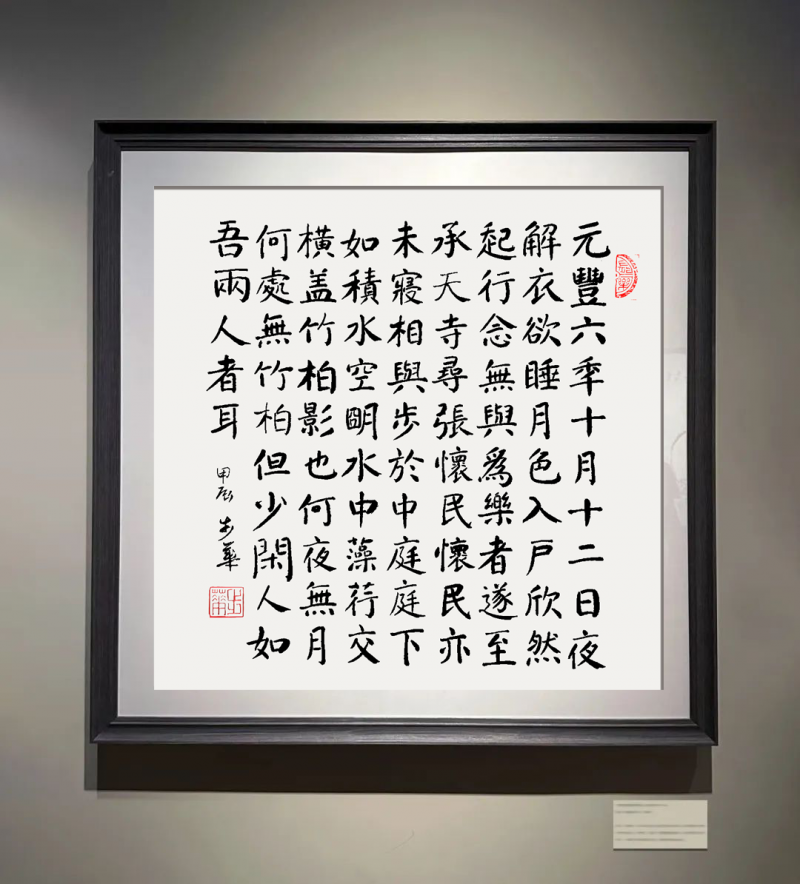 元豐六秊十月十二日夜
解衣欲睡月色入戶欣然
起行念無與爲樂者遂至
承天寺尋張懷民懷民亦
未寢相與步於中庭庭下
如積水空明水中藻荇交
橫盖竹柏影也何夜無月
何處無竹柏但少閑人如
吾兩人者耳
甲辰 步華